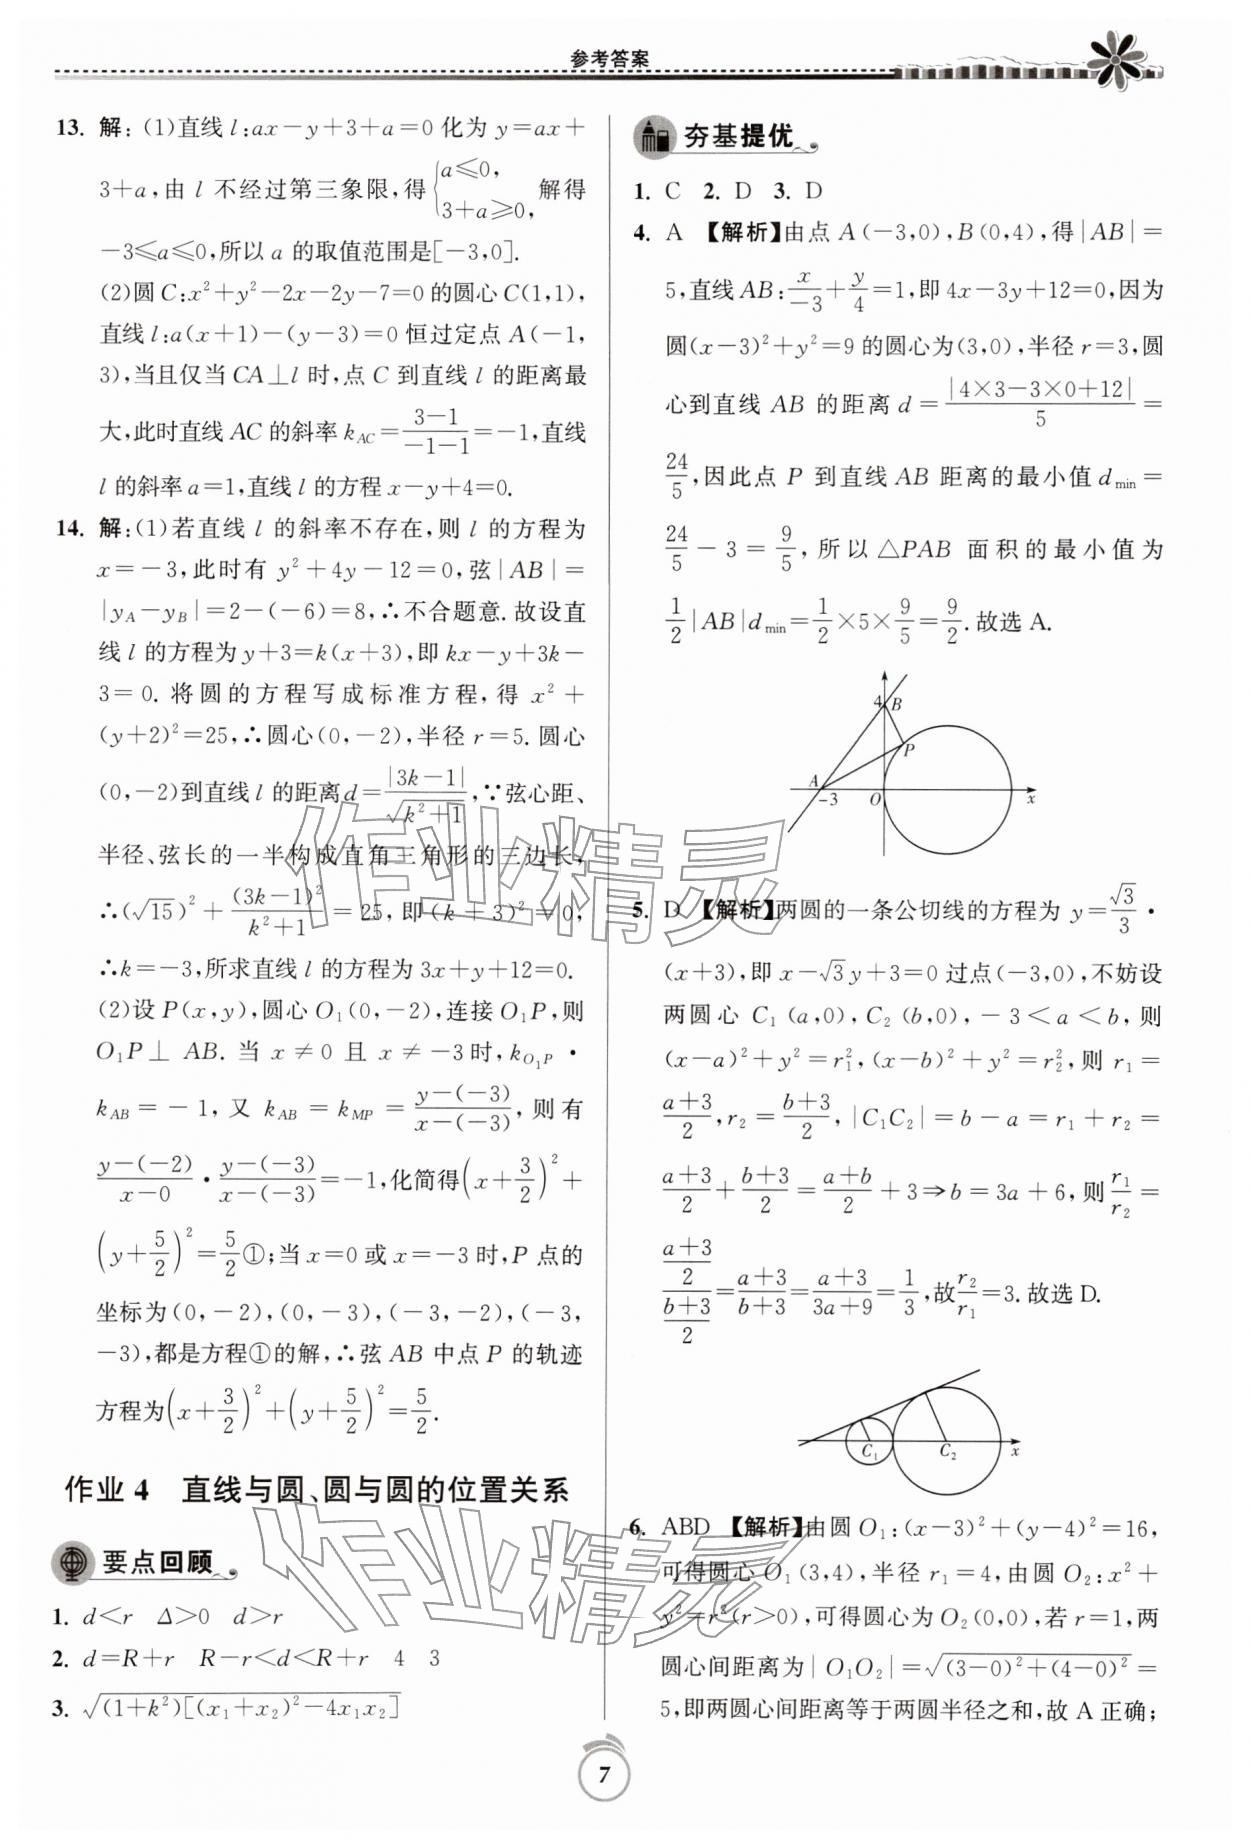 参考答案
13. 解:(1)直线 l:ax-y+3+a=0 化为 y=ax+
3+a,由 l 不经过第三象限,得{a≤0, 3+a≥0, 解得
-3≤a≤0,所以 a 的取值范围是[-3,0].
(2)圆 C:x²+y²-2x-2y-7=0 的圆心 C(1,1),
直线 l:a(x+1)-(y-3)=0 恒过定点 A(-1,
3),当且仅当 CA⊥l 时,点 C 到直线 l 的距离最
大,此时直线 AC 的斜率 k_AC=(3-1)/(-1-1)=-1,直线
l 的斜率 a=1,直线 l 的方程 x-y+4=0.
14. 解:(1)若直线 l 的斜率不存在,则 l 的方程为
x=-3,此时有 y²+4y-12=0,弦|AB|=
|y_A-y_B|=2-(-6)=8,∴不合题意.故设直
线 l 的方程为 y+3=k(x+3),即 kx-y+3k-
3=0. 将圆的方程写成标准方程,得 x²+
(y+2)²=25,∴圆心(0,-2),半径 r=5.圆心
(0,-2)到直线 l 的距离 d=|3k-1|/√(k²+1),∵弦心距、
半径、弦长的一半构成直角三角形的三边长,
∴(√15)²+(3k-1)²/(k²+1)=25,即(k+3)²=0,
∴k=-3,所求直线 l 的方程为 3x+y+12=0.
(2)设 P(x,y),圆心 O₁(0,-2),连接 O₁P,则
O₁P⊥AB. 当 x≠0 且 x≠-3 时,k_O₁P·
k_AB=-1,又 k_AB=k_MP=(y-(-3))/(x-(-3)),则有
(y-(-2))/(x-0)·(y-(-3))/(x-(-3))=-1,化简得(x+3/2)²+
(y+5/2)²=5/2①;当 x=0 或 x=-3 时,P 点的
坐标为(0,-2),(0,-3),(-3,-2),(-3,
-3),都是方程①的解,∴弦 AB 中点 P 的轨迹
方程为(x+3/2)²+(y+5/2)²=5/2.
作业 4 直线与圆、圆与圆的位置关系
要点回顾
1. d<r Δ>0 d>r
2. d=R+r R-r<d<R+r 4 3
3. √((1+k²)[(x₁+x₂)²-4x₁x₂])
夯基提优
1. C 2. D 3. D
4. A 【解析】由点 A(-3,0),B(0,4),得|AB|=
5,直线 AB:x/(-3)+y/4=1,即 4x-3y+12=0,因为
圆(x-3)²+y²=9 的圆心为(3,0),半径 r=3,圆
心到直线 AB 的距离 d=|4×3-3×0+12|/5=
24/5,因此点 P 到直线 AB 距离的最小值 d_min=
24/5-3=9/5,所以△PAB 面积的最小值为
1/2|AB|d_min=1/2×5×9/5=9/2.故选 A.
4 B
P
A
-3 O x
5. D 【解析】两圆的一条公切线的方程为 y=√3/3·
(x+3),即 x-√3y+3=0 过点(-3,0),不妨设
两圆心 C₁(a,0),C₂(b,0),-3<a<b,则
(x-a)²+y²=r₁²,(x-b)²+y²=r₂²,则 r₁=
(a+3)/2,r₂=(b+3)/2,|C₁C₂|=b-a=r₁+r₂=
(a+3)/2+(b+3)/2=(a+b)/2+3⇒b=3a+6,则r₁/r₂=
((a+3)/2)/((b+3)/2)=(a+3)/(b+3)=(a+3)/(3a+9)=1/3,故r₂/r₁=3.故选 D.
C₁ C₂ x
6. ABD 【解析】由圆 O₁:(x-3)²+(y-4)²=16,
可得圆心 O₁(3,4),半径 r₁=4,由圆 O₂:x²+
y²=r²(r>0),可得圆心为 O₂(0,0),若 r=1,两
圆心间距离为|O₁O₂|=√((3-0)²+(4-0)²)=
5,即两圆心间距离等于两圆半径之和,故 A 正确;
作业精灵
作业精灵
7